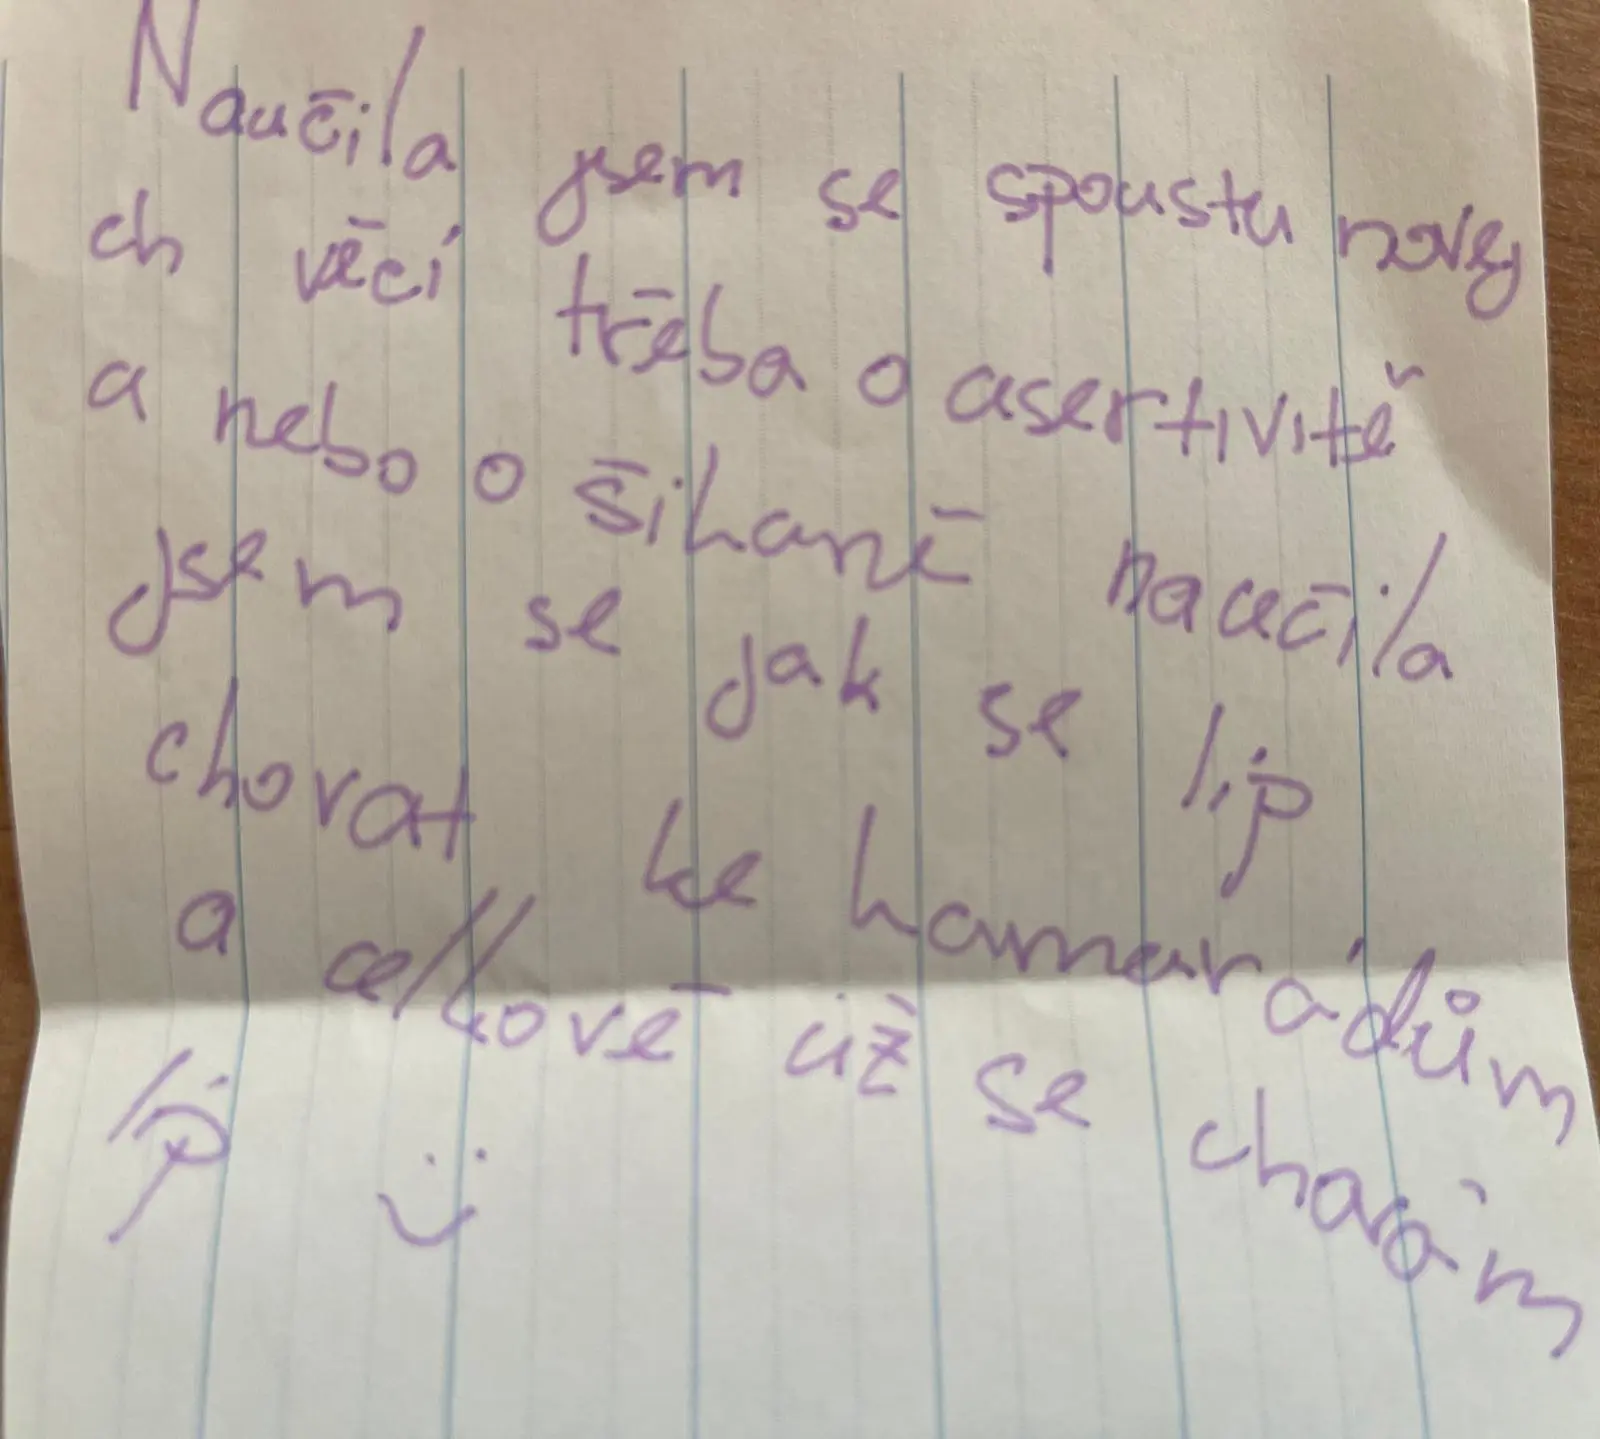 Naučila jsem se spoustu novej
ch věcí třeba o asertivitě
a nebo o šikaně naučila
jsem se jak se líp
chovat ke kamarádům
a celkově už se chovám
líp :)